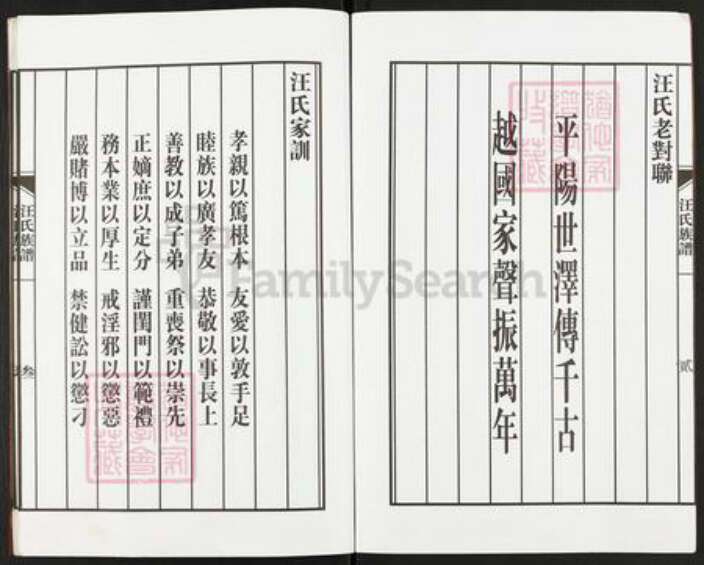 汪氏老對聯
平陽世澤傳千古
越國家聲振萬年
汪氏族譜
貳
汪氏家訓
孝親以篤根本 友愛以敦手足
睦族以廣孝友 恭敬以事長上
善教以成子弟 重喪祭以崇先
正嫡庶以定分 謹閨門以範禮
務本業以厚生 戒淫邪以懲惡
嚴賭博以立品 禁健訟以懲刁
汪氏族譜
叁
FamilySearch